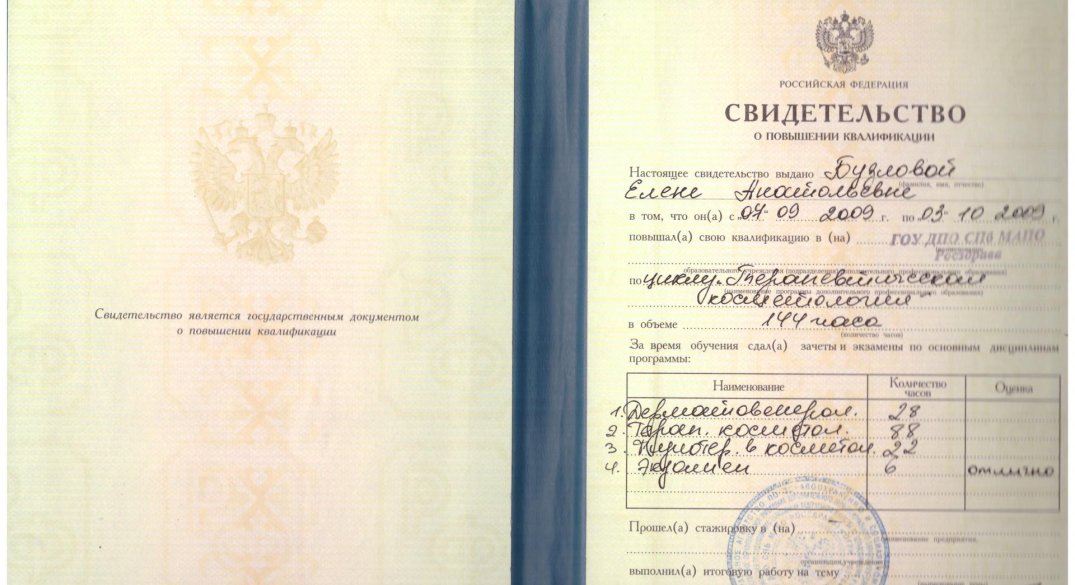 Свидетельство является государственным документом
о повышении квалификации
РОССИЙСКАЯ ФЕДЕРАЦИЯ
СВИДЕТЕЛЬСТВО
О ПОВЫШЕНИИ КВАЛИФИКАЦИИ
Настоящее свидетельство выдано Бузловой
(фамилия, имя, отчество)
Елене Анатольевне
в том, что он(а) с 07 09 2009 г. по 03 10 2009 г.
повышал(а) свою квалификацию в (на) ГОУ ДПО СПб МАПО
Росздрава
образовательного учреждения (подразделения) дополнительного профессионального образования)
по циклу „Терапевтическая
(наименование программы дополнительного профессионального образования)
косметология"
в объеме 144 часа
(количество часов)
За время обучения сдал(а) зачеты и экзамены по основным дисциплинам
программы:
Наименование Количество часов Оценка
1. Дерматовенерол. 28
2. Терап. косметол. 88
3. в косметол. 22
4. Экзамен 6 отлично
Прошел(а) стажировку в (на)
наименование предприятия,
организации, учреждения
выполнил(а) итоговую работу на тему